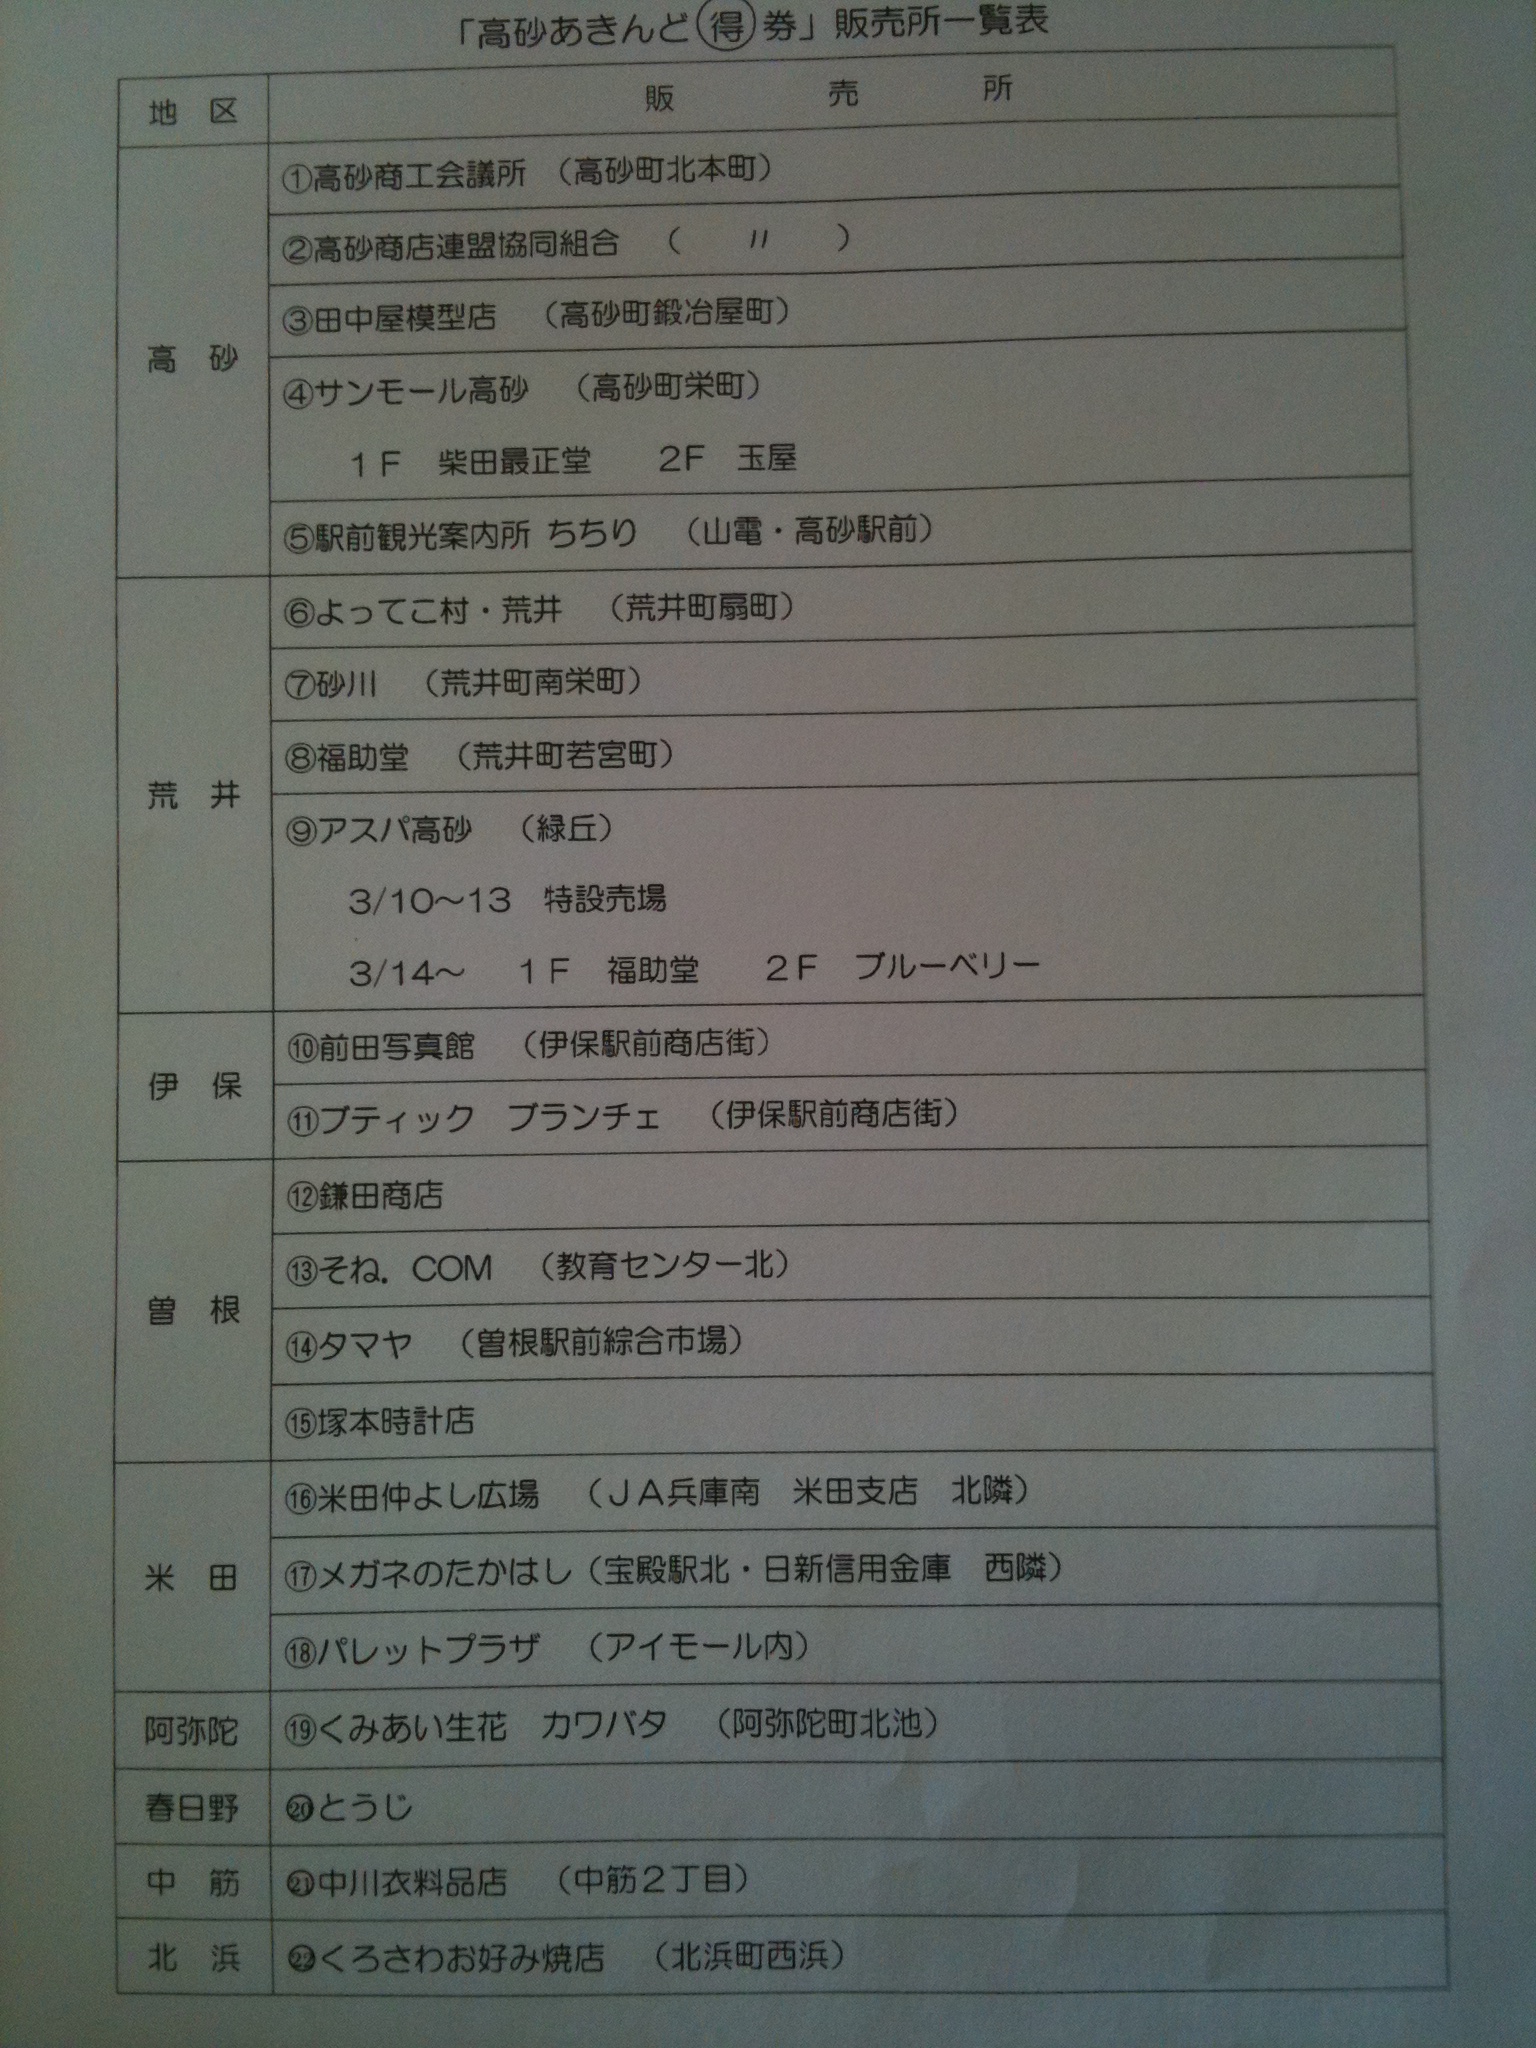 「高砂あきんど㊝券」販売所一覧表
地　区　販　売　所
高　砂
①高砂商工会議所　（高砂町北本町）
②高砂商店連盟協同組合　（　〃　）
③田中屋模型店　（高砂町鍛冶屋町）
④サンモール高砂　（高砂町栄町）
１Ｆ　柴田最正堂　２Ｆ　玉屋
⑤駅前観光案内所 ちちり　（山電・高砂駅前）
荒　井
⑥よってこ村・荒井　（荒井町扇町）
⑦砂川　（荒井町南栄町）
⑧福助堂　（荒井町若宮町）
⑨アスパ高砂　（緑丘）
3/10～13　特設売場
3/14～　１Ｆ　福助堂　２Ｆ　ブルーベリー
伊　保
⑩前田写真館　（伊保駅前商店街）
⑪ブティック　ブランチェ　（伊保駅前商店街）
曽　根
⑫鎌田商店
⑬そね．COM　（教育センター北）
⑭タマヤ　（曽根駅前綜合市場）
⑮塚本時計店
米　田
⑯米田仲よし広場　（ＪＡ兵庫南　米田支店　北隣）
⑰メガネのたかはし（宝殿駅北・日新信用金庫　西隣）
⑱パレットプラザ　（アイモール内）
阿弥陀　⑲くみあい生花　カワバタ　（阿弥陀町北池）
春日野　⑳とうじ
中　筋　㉑中川衣料品店　（中筋２丁目）
北　浜　㉒くろさわお好み焼店　（北浜町西浜）